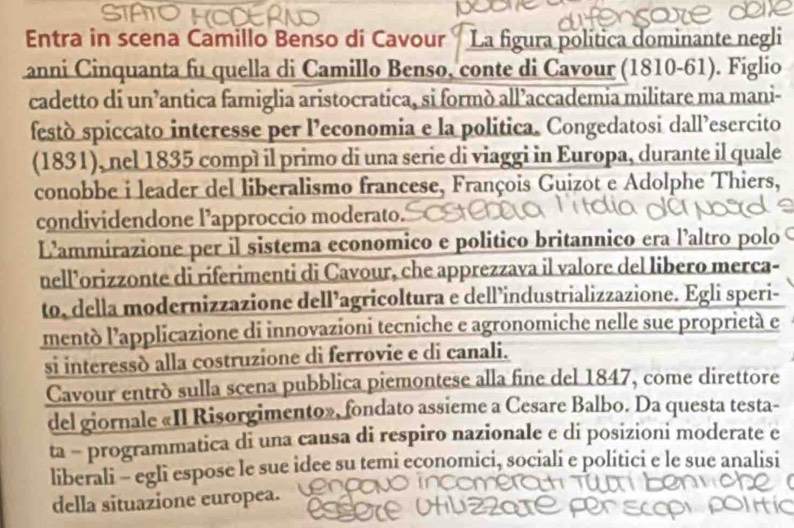 STATO MODERNO
difensore delle
Entra in scena Camillo Benso di Cavour La figura politica dominante negli
anni Cinquanta fu quella di Camillo Benso, conte di Cavour (1810-61). Figlio
cadetto di un’antica famiglia aristocratica, si formò all’accademia militare ma mani-
festò spiccato interesse per l’economia e la politica. Congedatosi dall’esercito
(1831), nel 1835 compì il primo di una serie di viaggi in Europa, durante il quale
conobbe i leader del liberalismo francese, François Guizot e Adolphe Thiers,
condividendone l’approccio moderato. l'italia
L’ammirazione per il sistema economico e politico britannico era l’altro polo
nell’orizzonte di riferimenti di Cavour, che apprezzava il valore del libero merca-
to, della modernizzazione dell’agricoltura e dell’industrializzazione. Egli speri-
mentò l’applicazione di innovazioni tecniche e agronomiche nelle sue proprietà e
si interessò alla costruzione di ferrovie e di canali.
Cavour entrò sulla scena pubblica piemontese alla fine del 1847, come direttore
del giornale «Il Risorgimento», fondato assieme a Cesare Balbo. Da questa testa-
ta – programmatica di una causa di respiro nazionale e di posizioni moderate e
liberali – egli espose le sue idee su temi economici, sociali e politici e le sue analisi
vengono incamerati tutti beni che
della situazione europea.
essere utilizzate per scopi politic